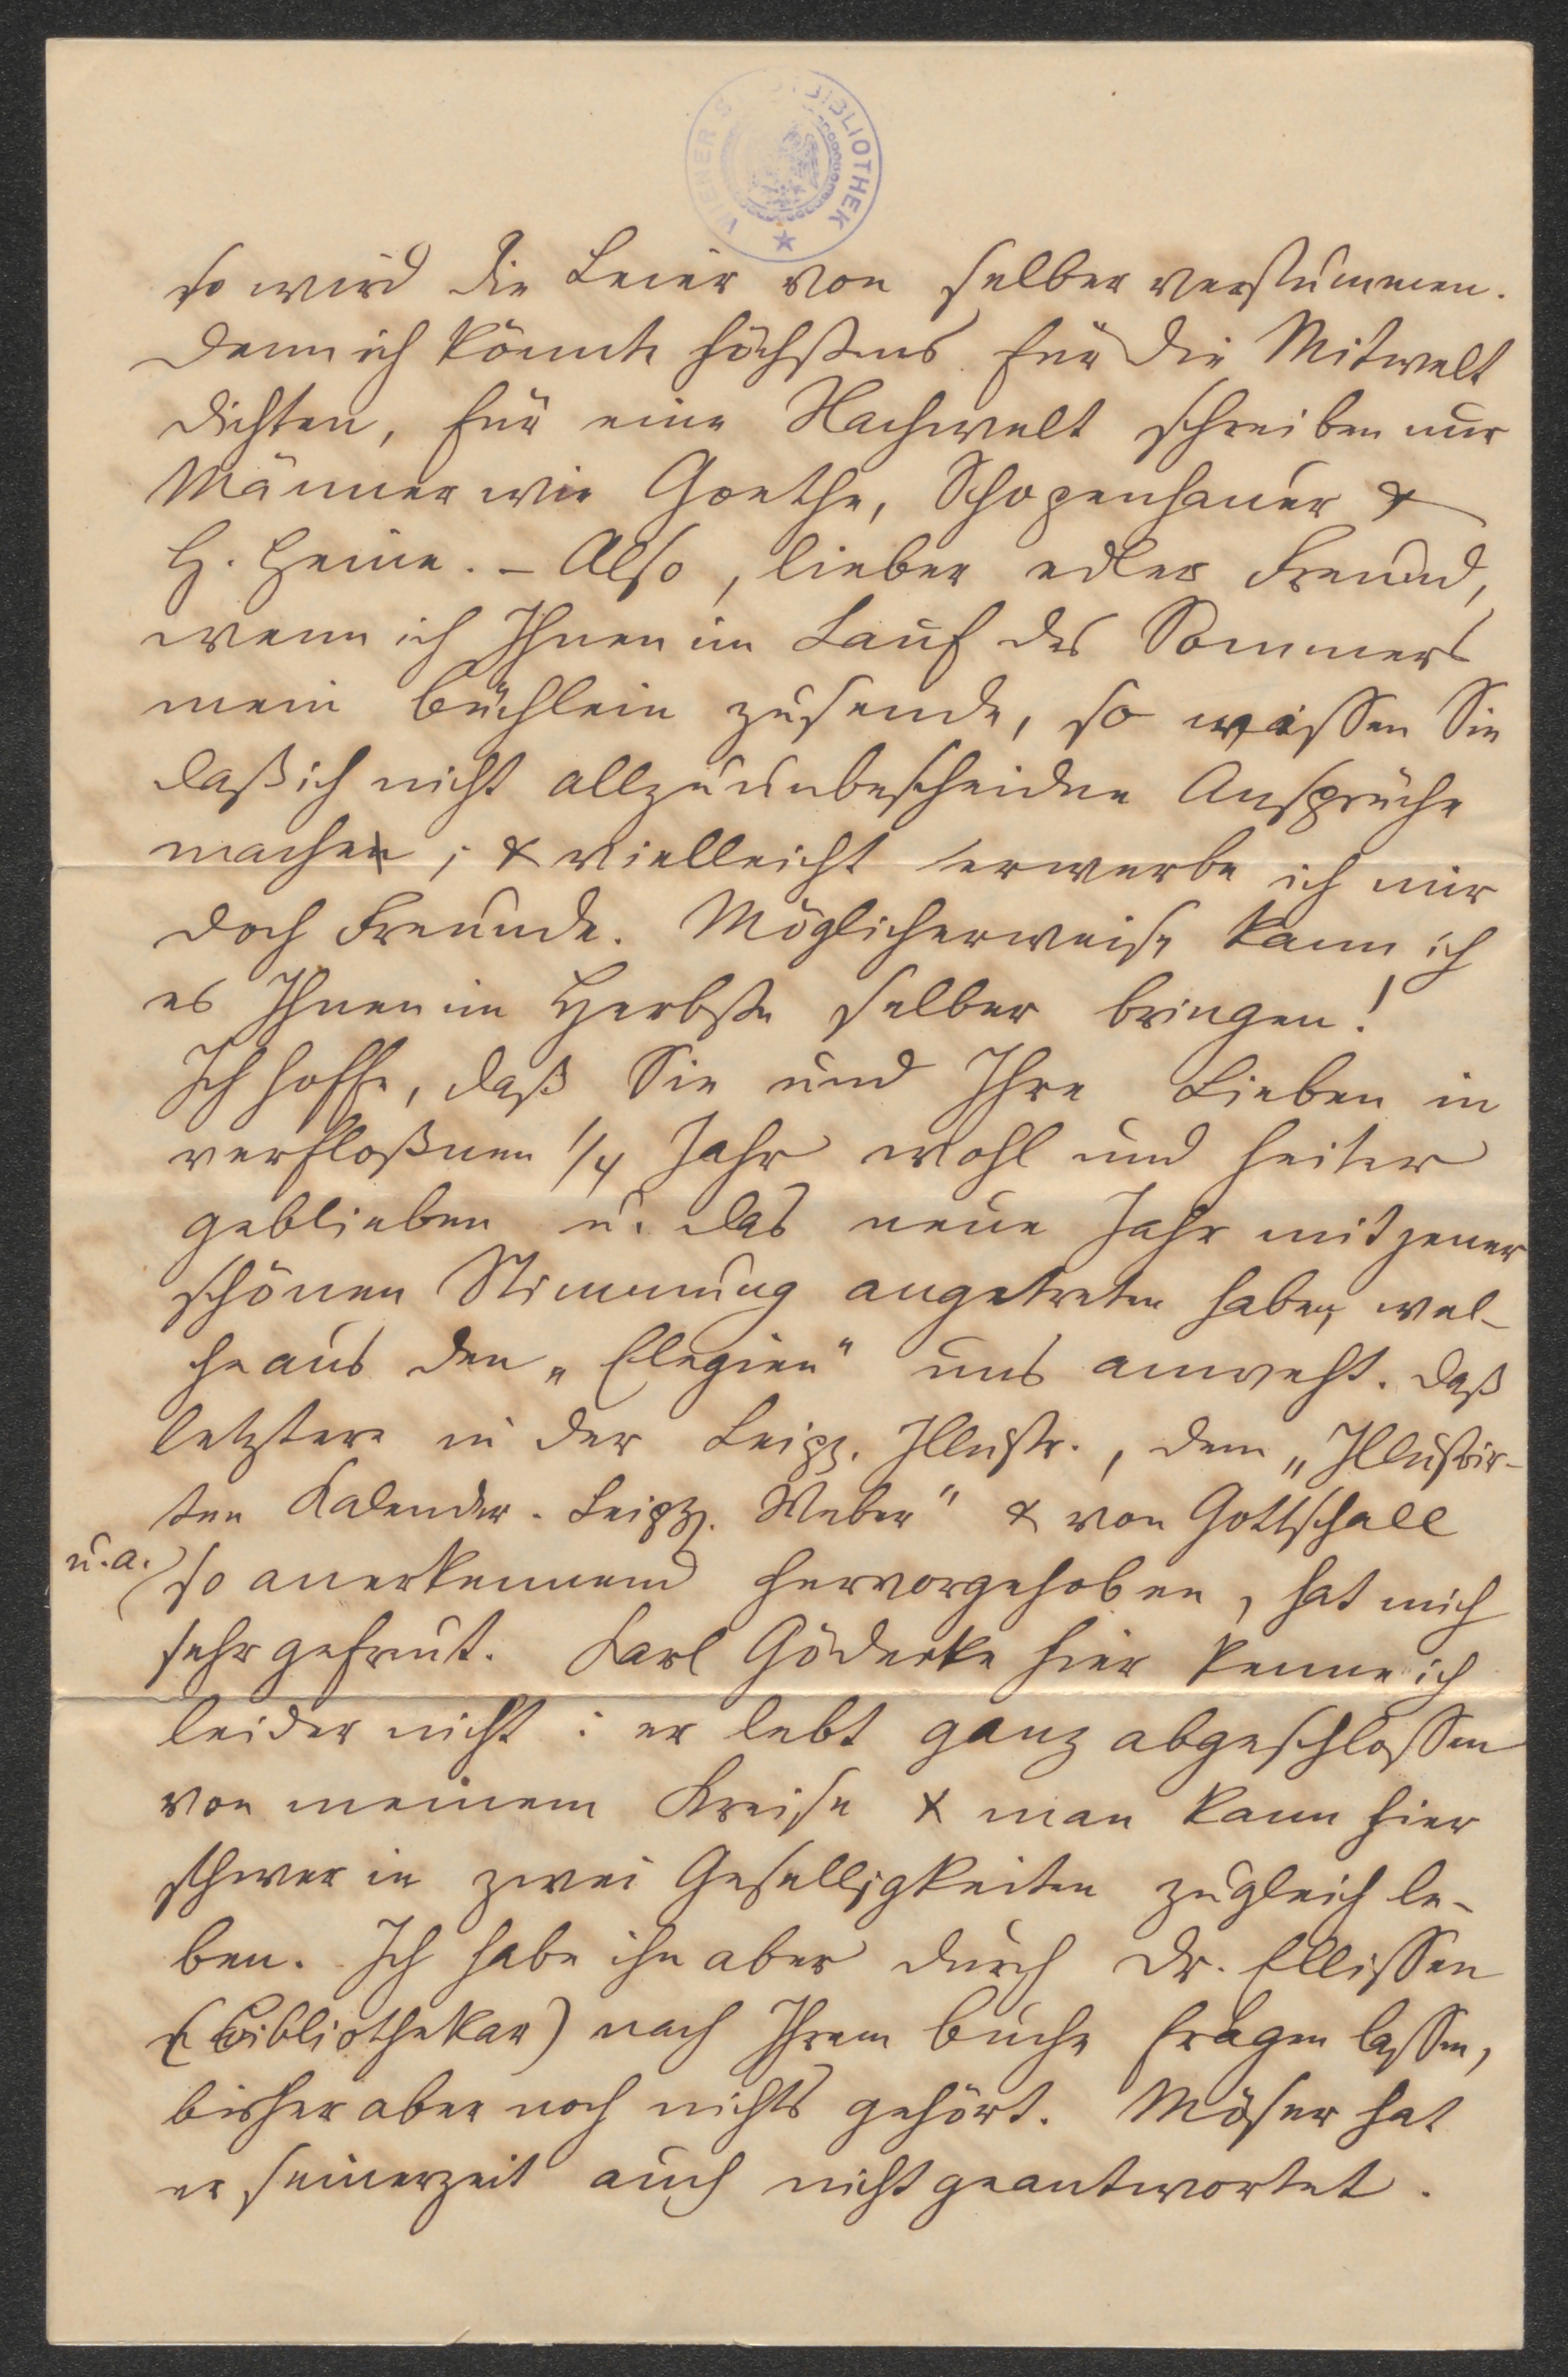 WIENER S BIBLIOTHEK
so wird die Leier von selber verstummen.
Denn ich könnte höchstens für die Mitwelt
dichten, für eine Nachwelt schreiben nur
Männer wie Goethe, Schopenhauer &
H. Heine. – Also, lieber edler Freund,
wenn ich Ihnen im Lauf des Sommers
mein Büchlein zusende, so wissen Sie
daß ich nicht allzuunbescheidne Ansprüche
mache; & vielleicht erwerbe ich mir
doch Freunde. Möglicherweise kann ich
es Ihnen im Herbste selber bringen!
Ich hoffe, daß Sie und Ihre Lieben in
verfloßnen 1/4 Jahr wohl und heiter
geblieben u. das neue Jahr mit jener
schönen Stimmung angetreten haben, wel-
che aus den „Elegien“ uns anweht. Daß
letztere in der Leipz. Illustr., dem „Illustrir-
ten Kalender. Leipzg. Weber“ & von Gottschall
u. a. so anerkennend hervorgehoben, hat mich
sehr gefreut. Karl Gödecke hier kenne ich
leider nicht: er lebt ganz abgeschlossen
von meinem Kreise & man kann hier
schwer in zwei Geselligkeiten zugleich le-
ben. Ich habe ihn aber durch Dr. Ellissen
(Bibliothekar) nach Ihrem Buche fragen lassen,
bisher aber noch nichts gehört. Möser hat
er seinerzeit auch nicht geantwortet.